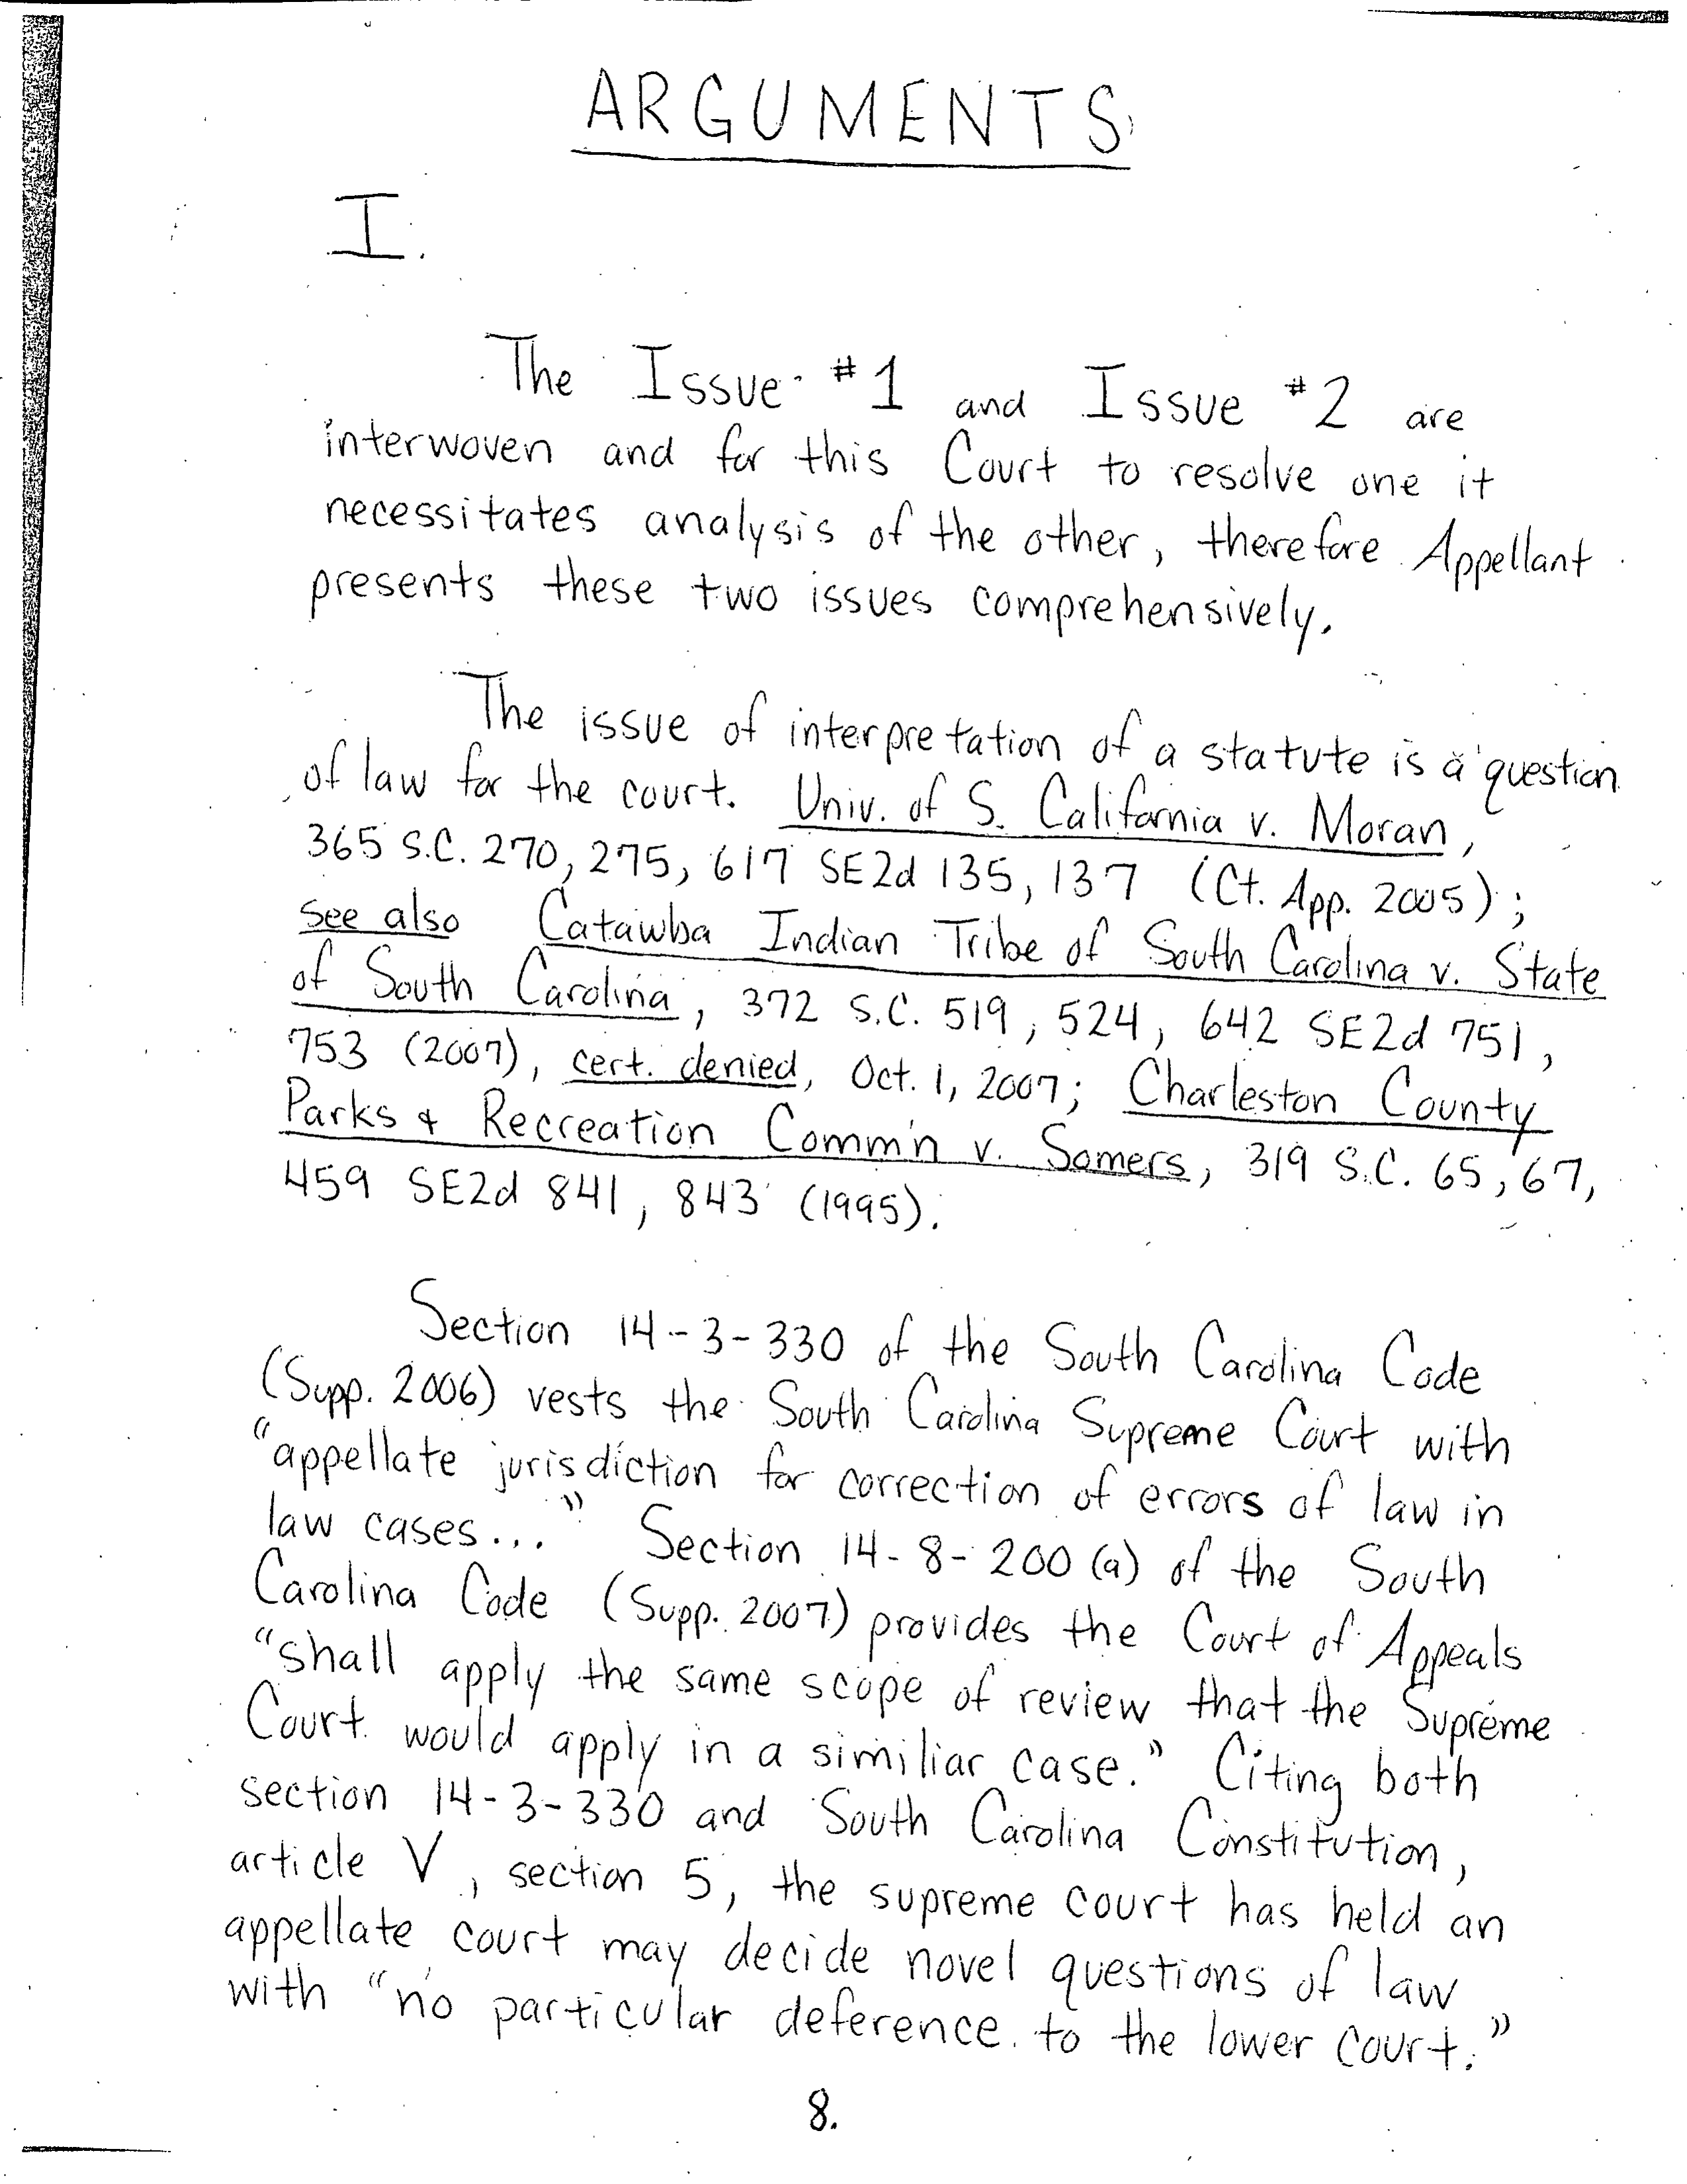 ARGUMENTS
I.
The Issue #1 and Issue #2 are
interwoven and for this Court to resolve one it
necessitates analysis of the other, therefore Appellant
presents these two issues comprehensively.
The issue of interpretation of a statute is a question
of law for the court. Univ. of S. California v. Moran,
365 S.C. 270, 275, 617 SE2d 135, 137 (Ct. App. 2005);
see also Catawba Indian Tribe of South Carolina v. State
of South Carolina, 372 S.C. 519, 524, 642 SE2d 751,
753 (2007), cert. denied, Oct. 1, 2007; Charleston County
Parks & Recreation Comm'n v. Somers, 319 S.C. 65, 67,
459 SE2d 841, 843 (1995).
Section 14-3-330 of the South Carolina Code
(Supp. 2006) vests the South Carolina Supreme Court with
"appellate jurisdiction for correction of errors of law in
law cases..." Section 14-8-200(a) of the South
Carolina Code (Supp. 2007) provides the Court of Appeals
"shall apply the same scope of review that the Supreme
Court would apply in a similiar case." Citing both
section 14-3-330 and South Carolina Constitution,
article V, section 5, the supreme court has held an
appellate court may decide novel questions of law
with "no particular deference to the lower court."
8.